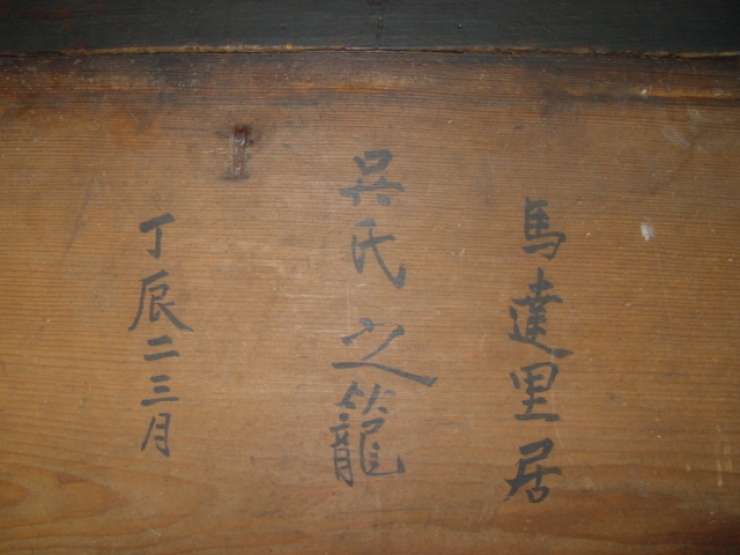 馬達里居
吳氏之籠
丁辰二三月